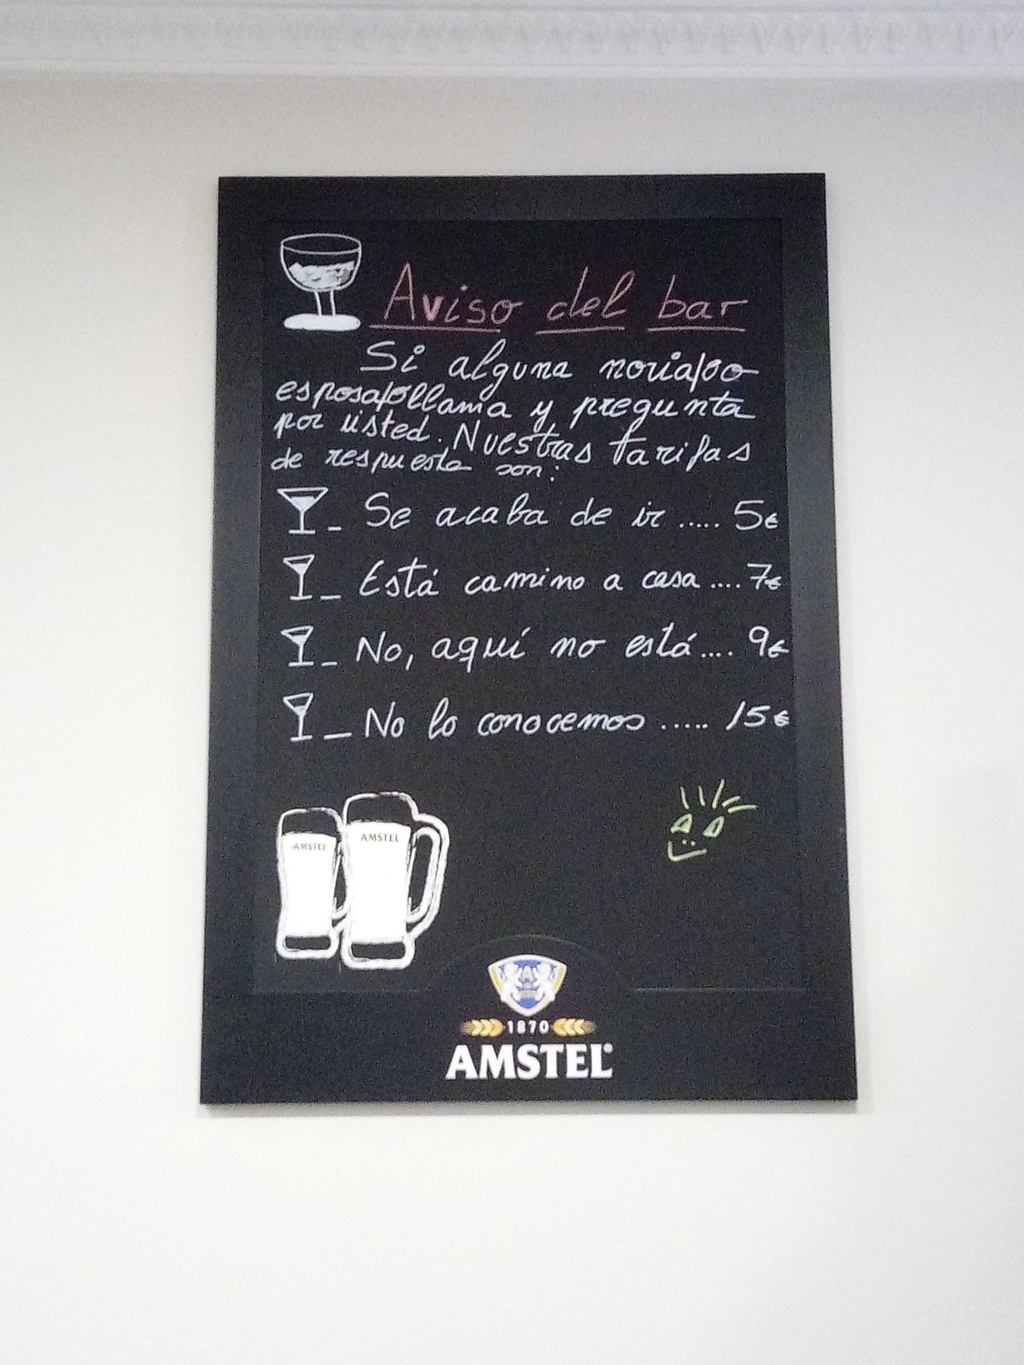 Aviso del bar
Si alguna novia/o o
esposa/o llama y pregunta
por usted. Nuestras tarifas
de respuesta son:
- Se acaba de ir ..... 5€
- Está camino a casa .... 7€
- No, aquí no está .... 9€
- No lo conocemos ..... 15€
AMSTEL AMSTEL
1870
AMSTEL®